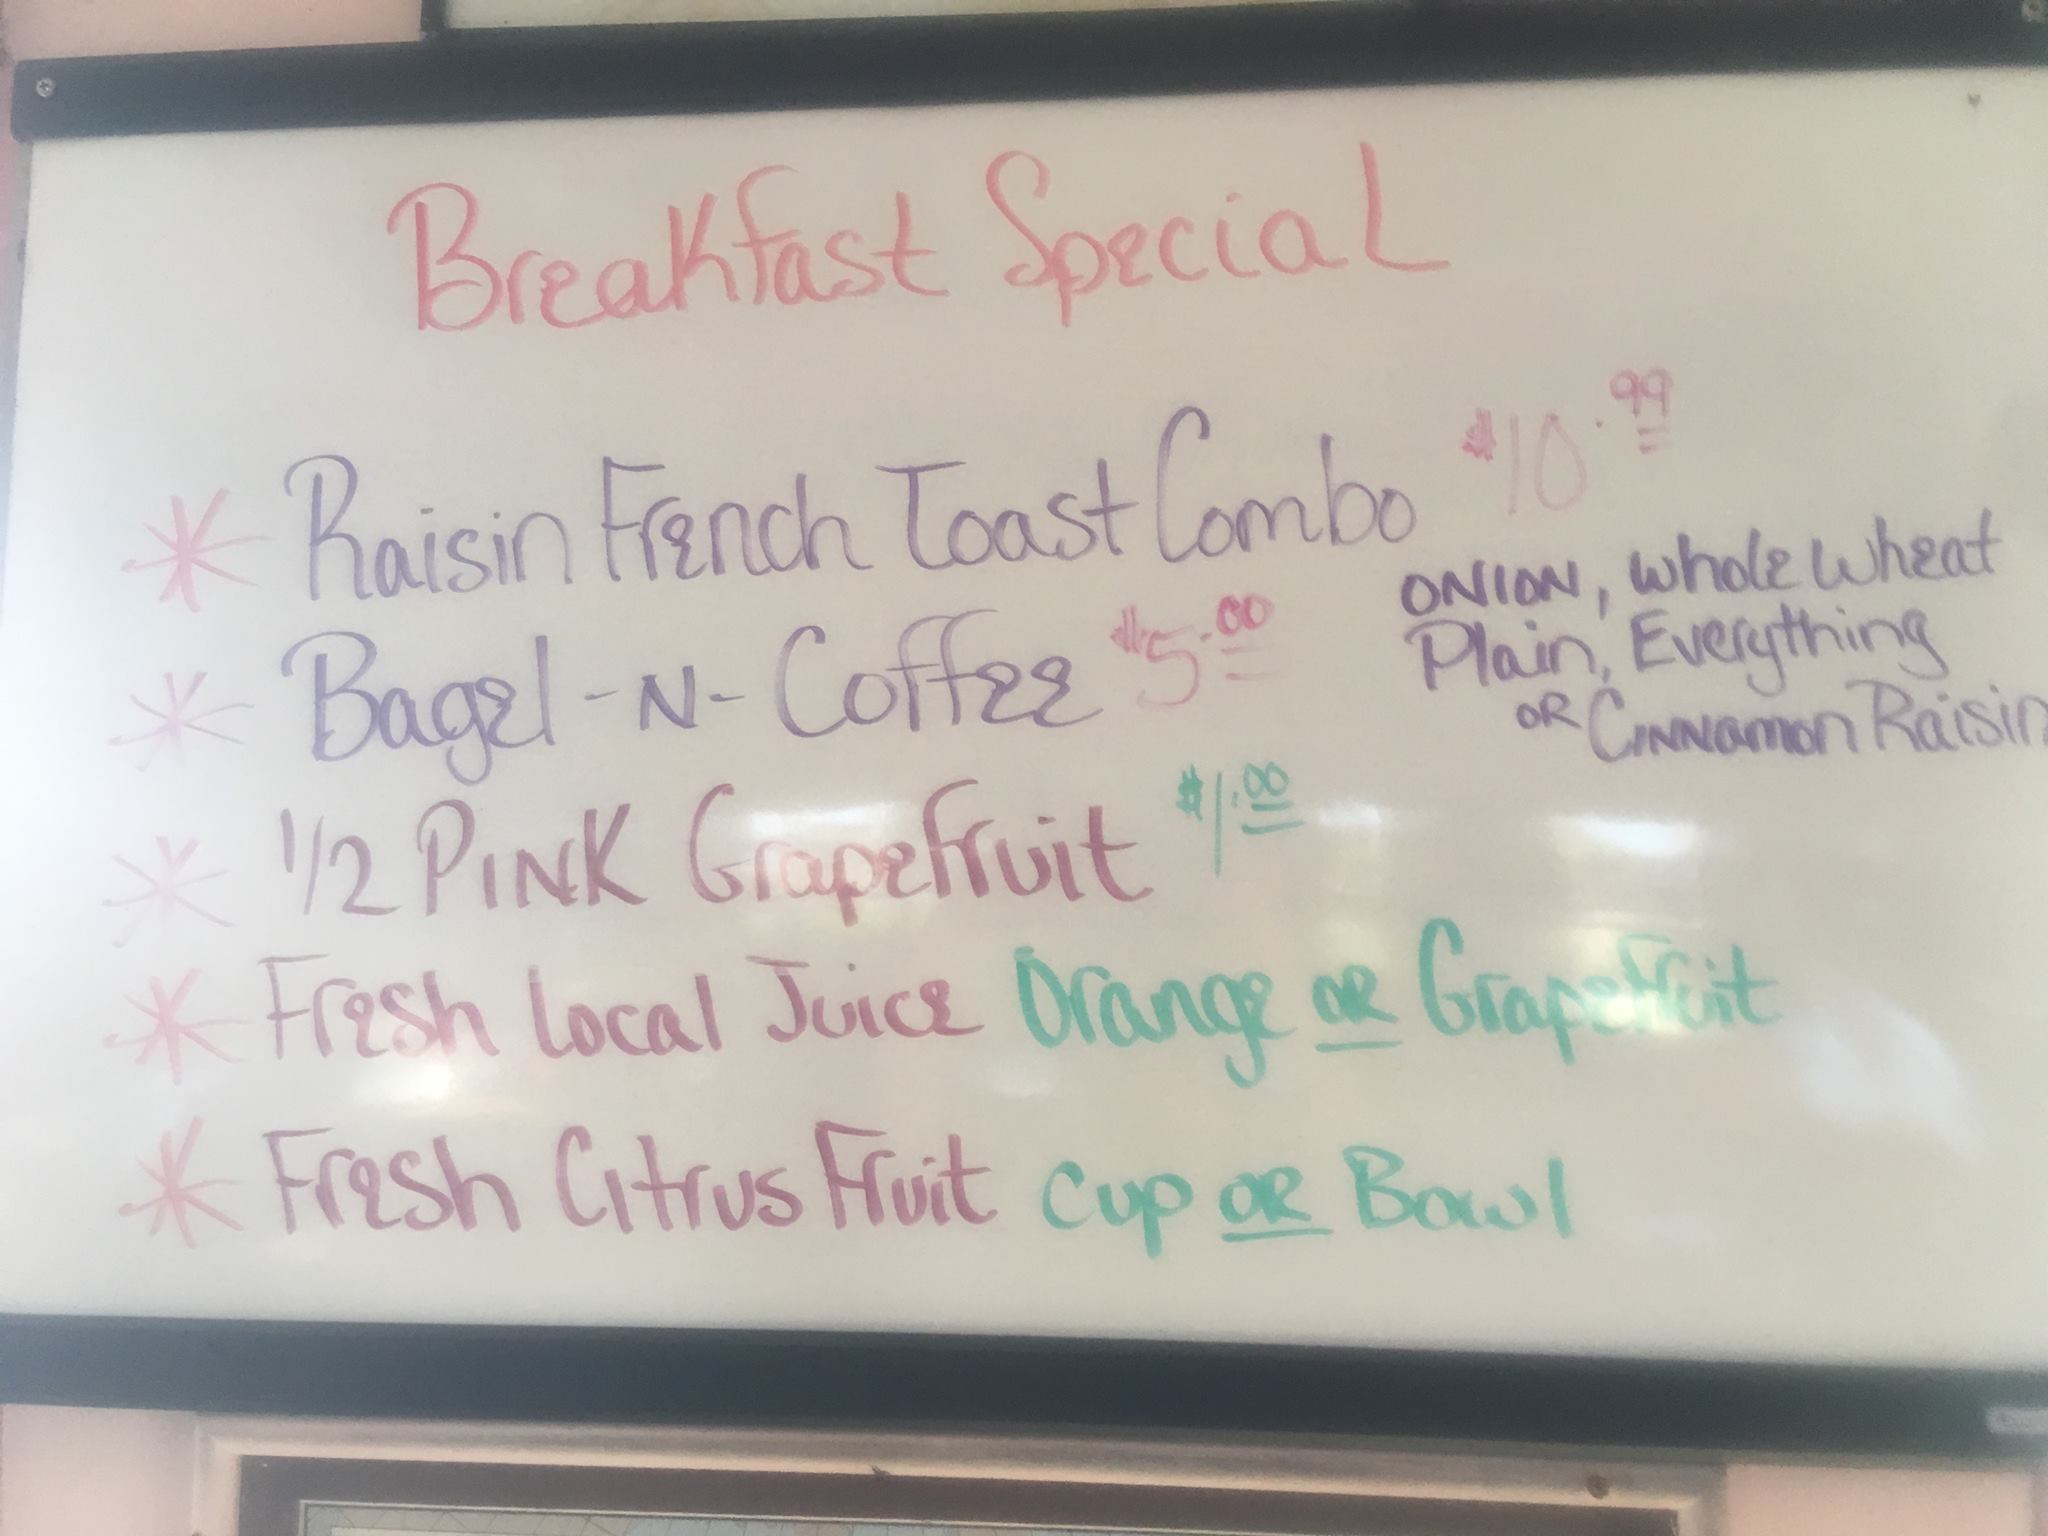 Breakfast Special
* Raisin French Toast Combo $10.99
* Bagel -N- Coffee $5.00
ONION, Whole Wheat
Plain, Everything
OR Cinnamon Raisin
* 1/2 PINK Grapefruit $1.00
* Fresh Local Juice Orange OR Grapefruit
* Fresh Citrus Fruit Cup OR Bowl